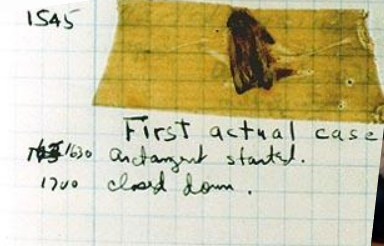 1545
First actual case
1630 arctangent started.
1700 closed down.